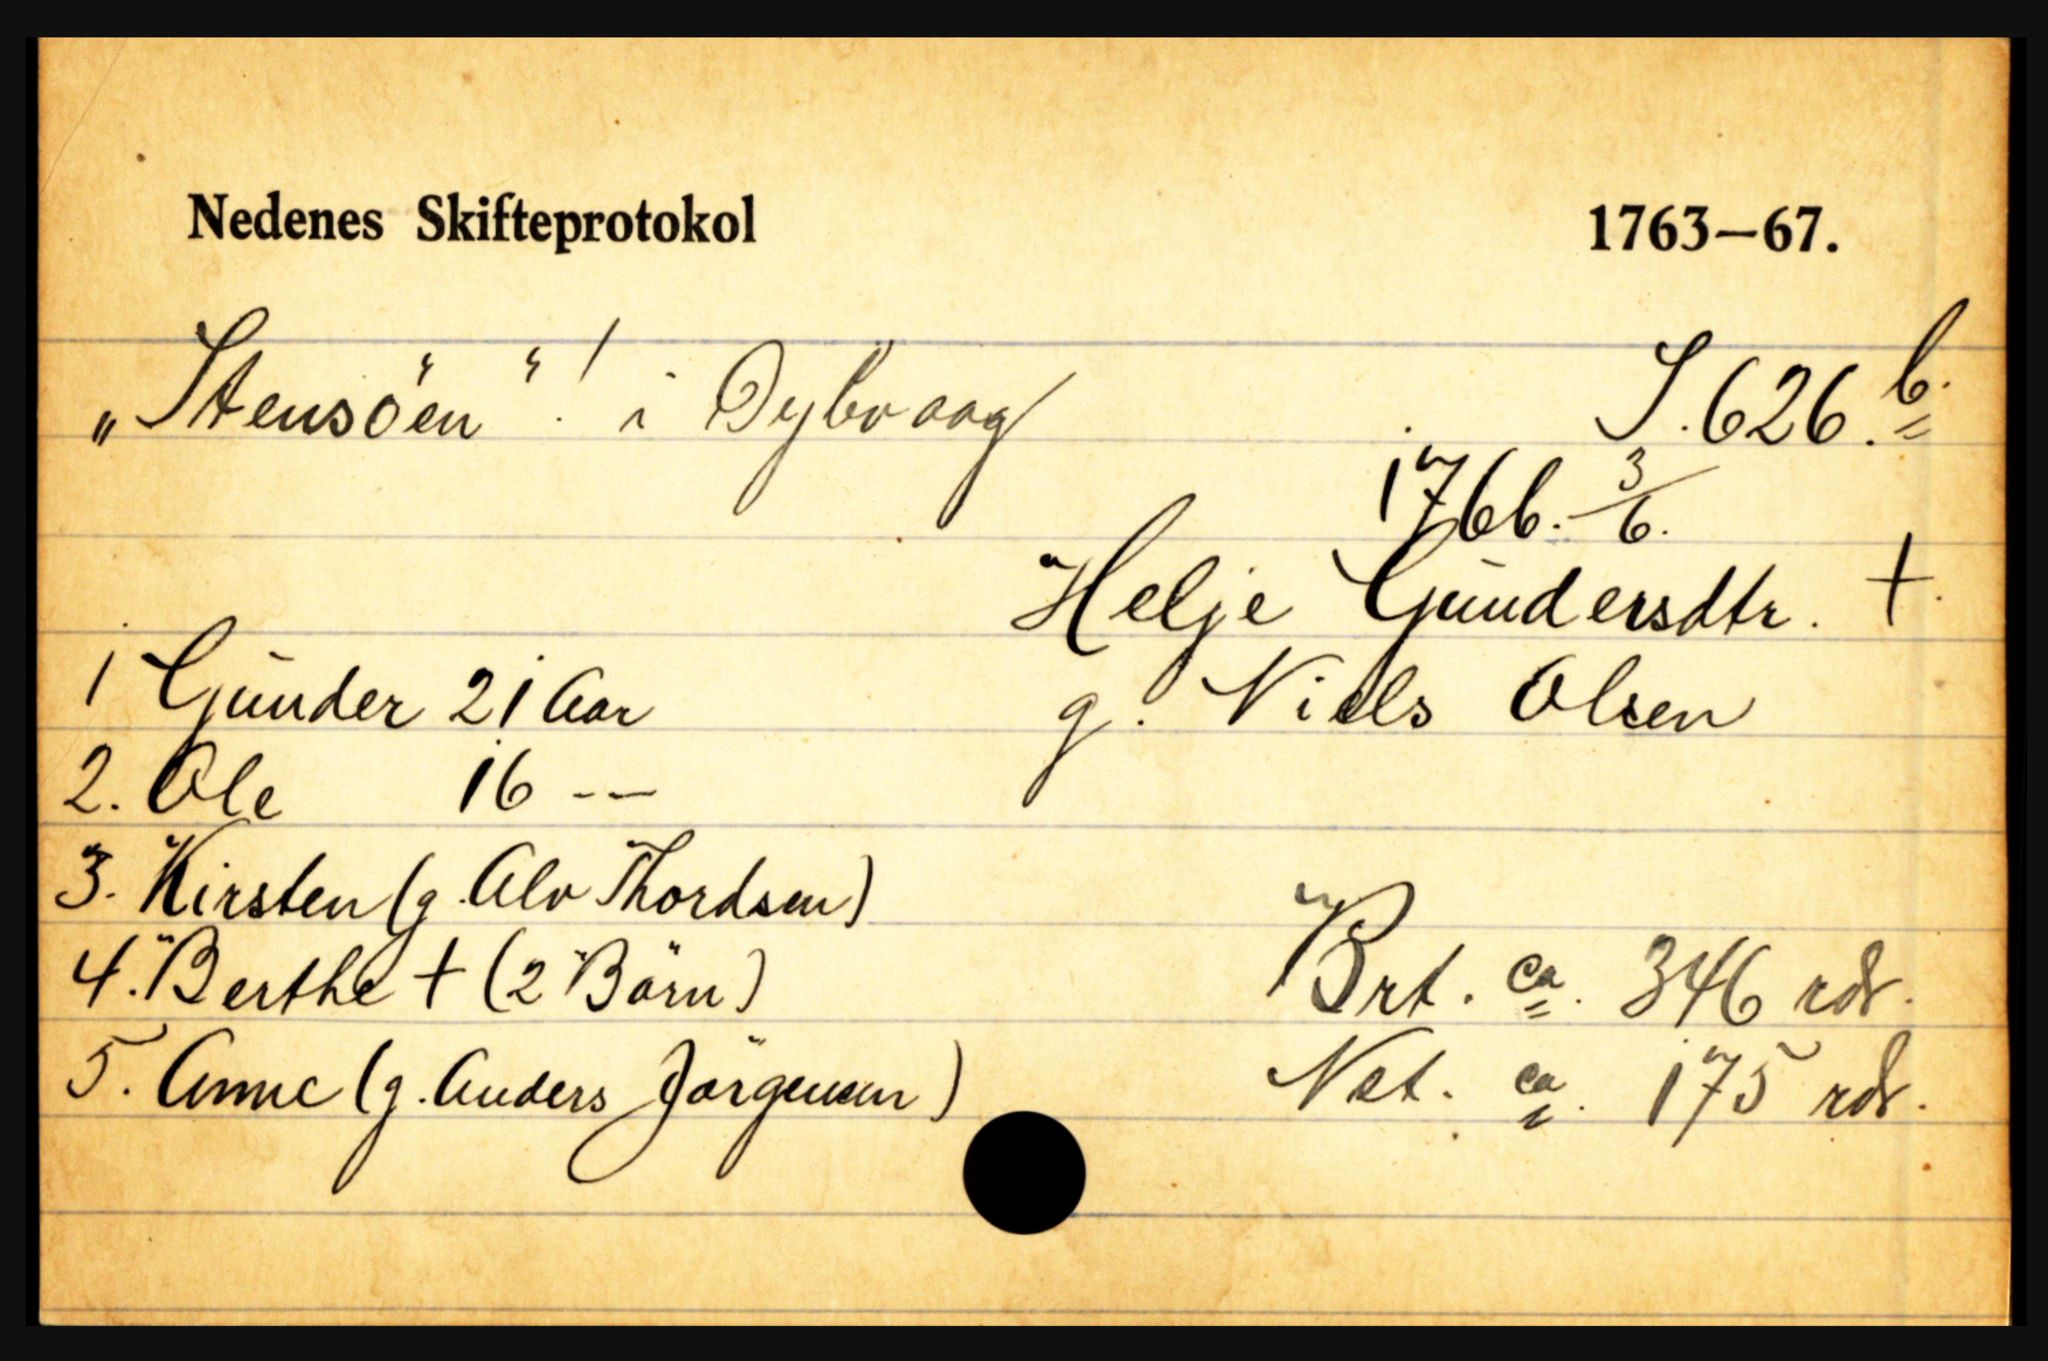 Nedenes Skifteprotokol 1763—67.
„Stensöen“! i Dybvaag S. 626.b.
1766. 3/6.
Helje Gundersdtr. †.
1 Gunder 21 Aar g. Niels Olsen
2. Ole 16 --
3. Kirsten (g. Alv Thordsen)
4. Berthe † (2 Börn) Brt. ca. 346 rdr.
5. Anne (g. Anders Jörgensen) Net. ca. 175 rdr.